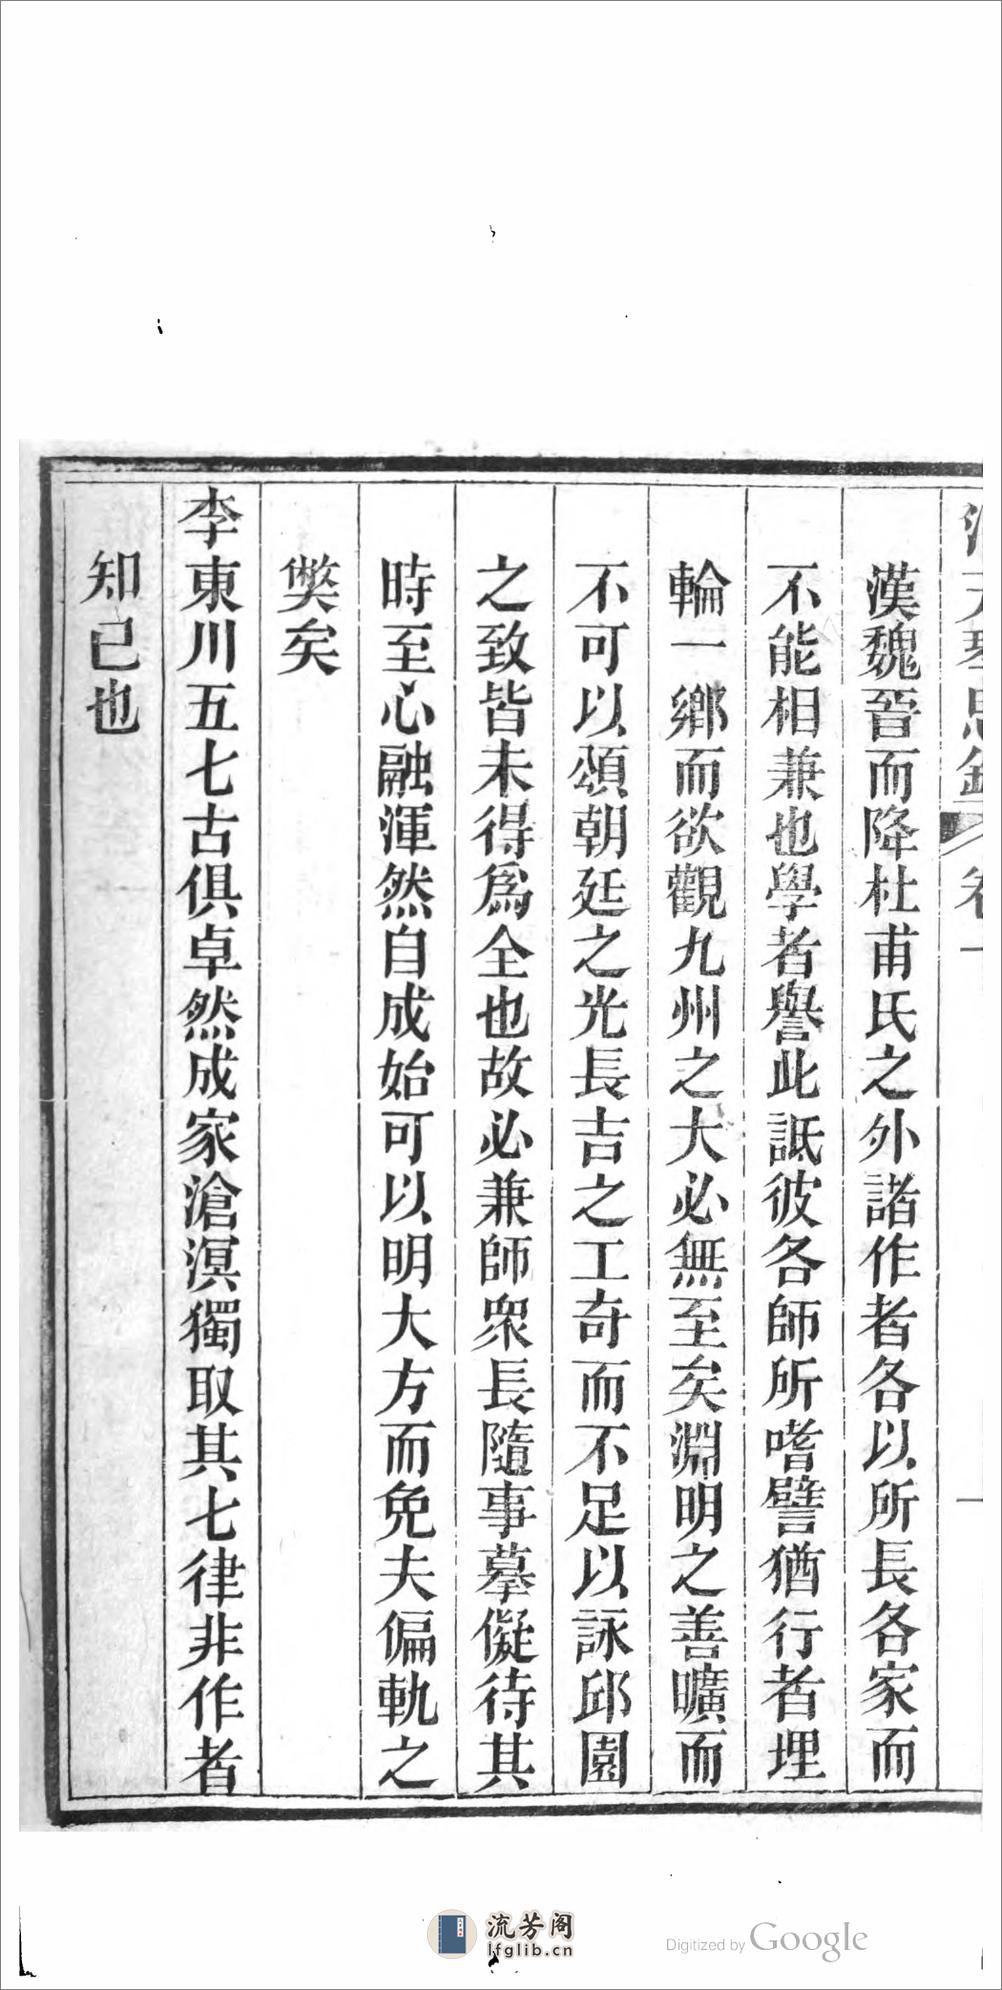 漢魏晉而降杜甫氏之外諸作者各以所長各家而
不能相兼也學者譽此詆彼各師所嗜譬猶行者埋
輪一鄉而欲觀九州之大必無至矣淵明之善曠而
不可以頌朝廷之光長吉之工奇而不足以詠邱園
之致皆未得爲全也故必兼師衆長隨事摹儗待其
時至心融渾然自成始可以明大方而免夫偏軌之
獘矣
李東川五七古俱卓然成家滄溟獨取其七律非作者
知己也
流芳阁
lfglib.cn
Digitized by Google